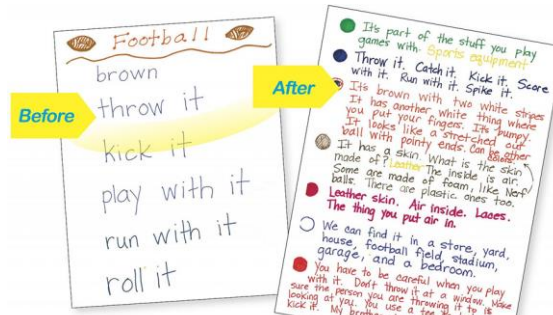 Football
brown
Before
throw it
kick it
play with it
run with it
roll it
After
It's part of the stuff you play
games with. Sports equipment
Throw it. Catch it. Kick it. Score
with it. Run with it. Spike it.
It's brown with two white stripes
It has another white thing where
you put your fingers. It's bumpy.
It looks like a stretched out
ball with pointy ends. Can be other
colors
It has a skin. What is the skin
made of? Leather The inside is air.
Some are made of foam, like Nerf
balls. There are plastic ones too.
Leather skin. Air inside. Laces.
The thing you put air in.
We can find it in a store, yard,
house, football field, stadium,
garage, and a bedroom.
You have to be careful when you play
with it. Don't throw it at a window. Make
sure the person you are throwing it to is
looking at you. You use a tee
kick it. My